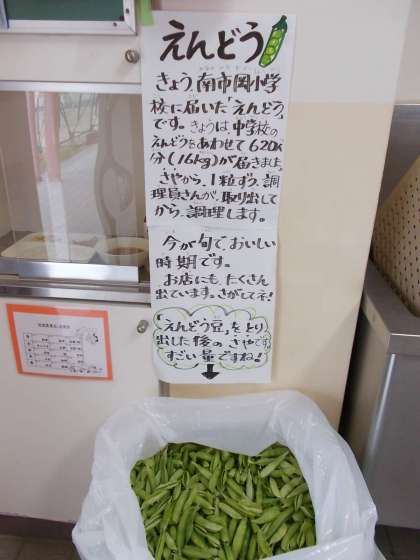 えんどう
きょう、南市岡小学
校に届いた「えんどう」
です。きょうは、中学校の
えんどうをあわせて620人
分(16kg)が届きました。
さやから、1粒ずつ、調
理員さんが、取り出して
から、調理します。
今が旬で、おいしい
時期です。
お店にも、たくさん
出ています。さがしてネ!
「えんどう豆」をとり
出した後のさやです。
すごい量ですね!